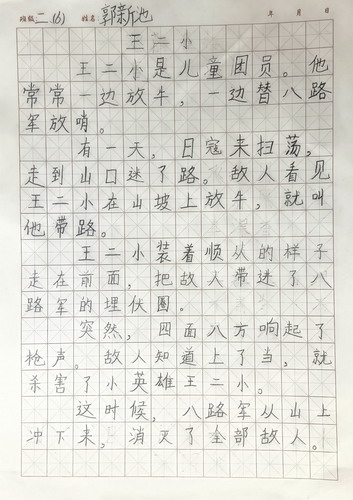 班级二(6) 姓名郭新池 年 月 日
王二小
王二小是儿童团员。他
常常一边放牛，一边替八路
军放哨。
有一天，日寇来扫荡，
走到山口迷了路。敌人看见
王二小在山坡上放牛，就叫
他带路。
王二小装着顺从的样子
走在前面，把敌人带进了八
路军的埋伏圈。
突然，四面八方响起了
枪声。敌人知道上了当，就
杀害了小英雄王二小。
这时候，八路军从山上
冲下来，消灭了全部敌人。